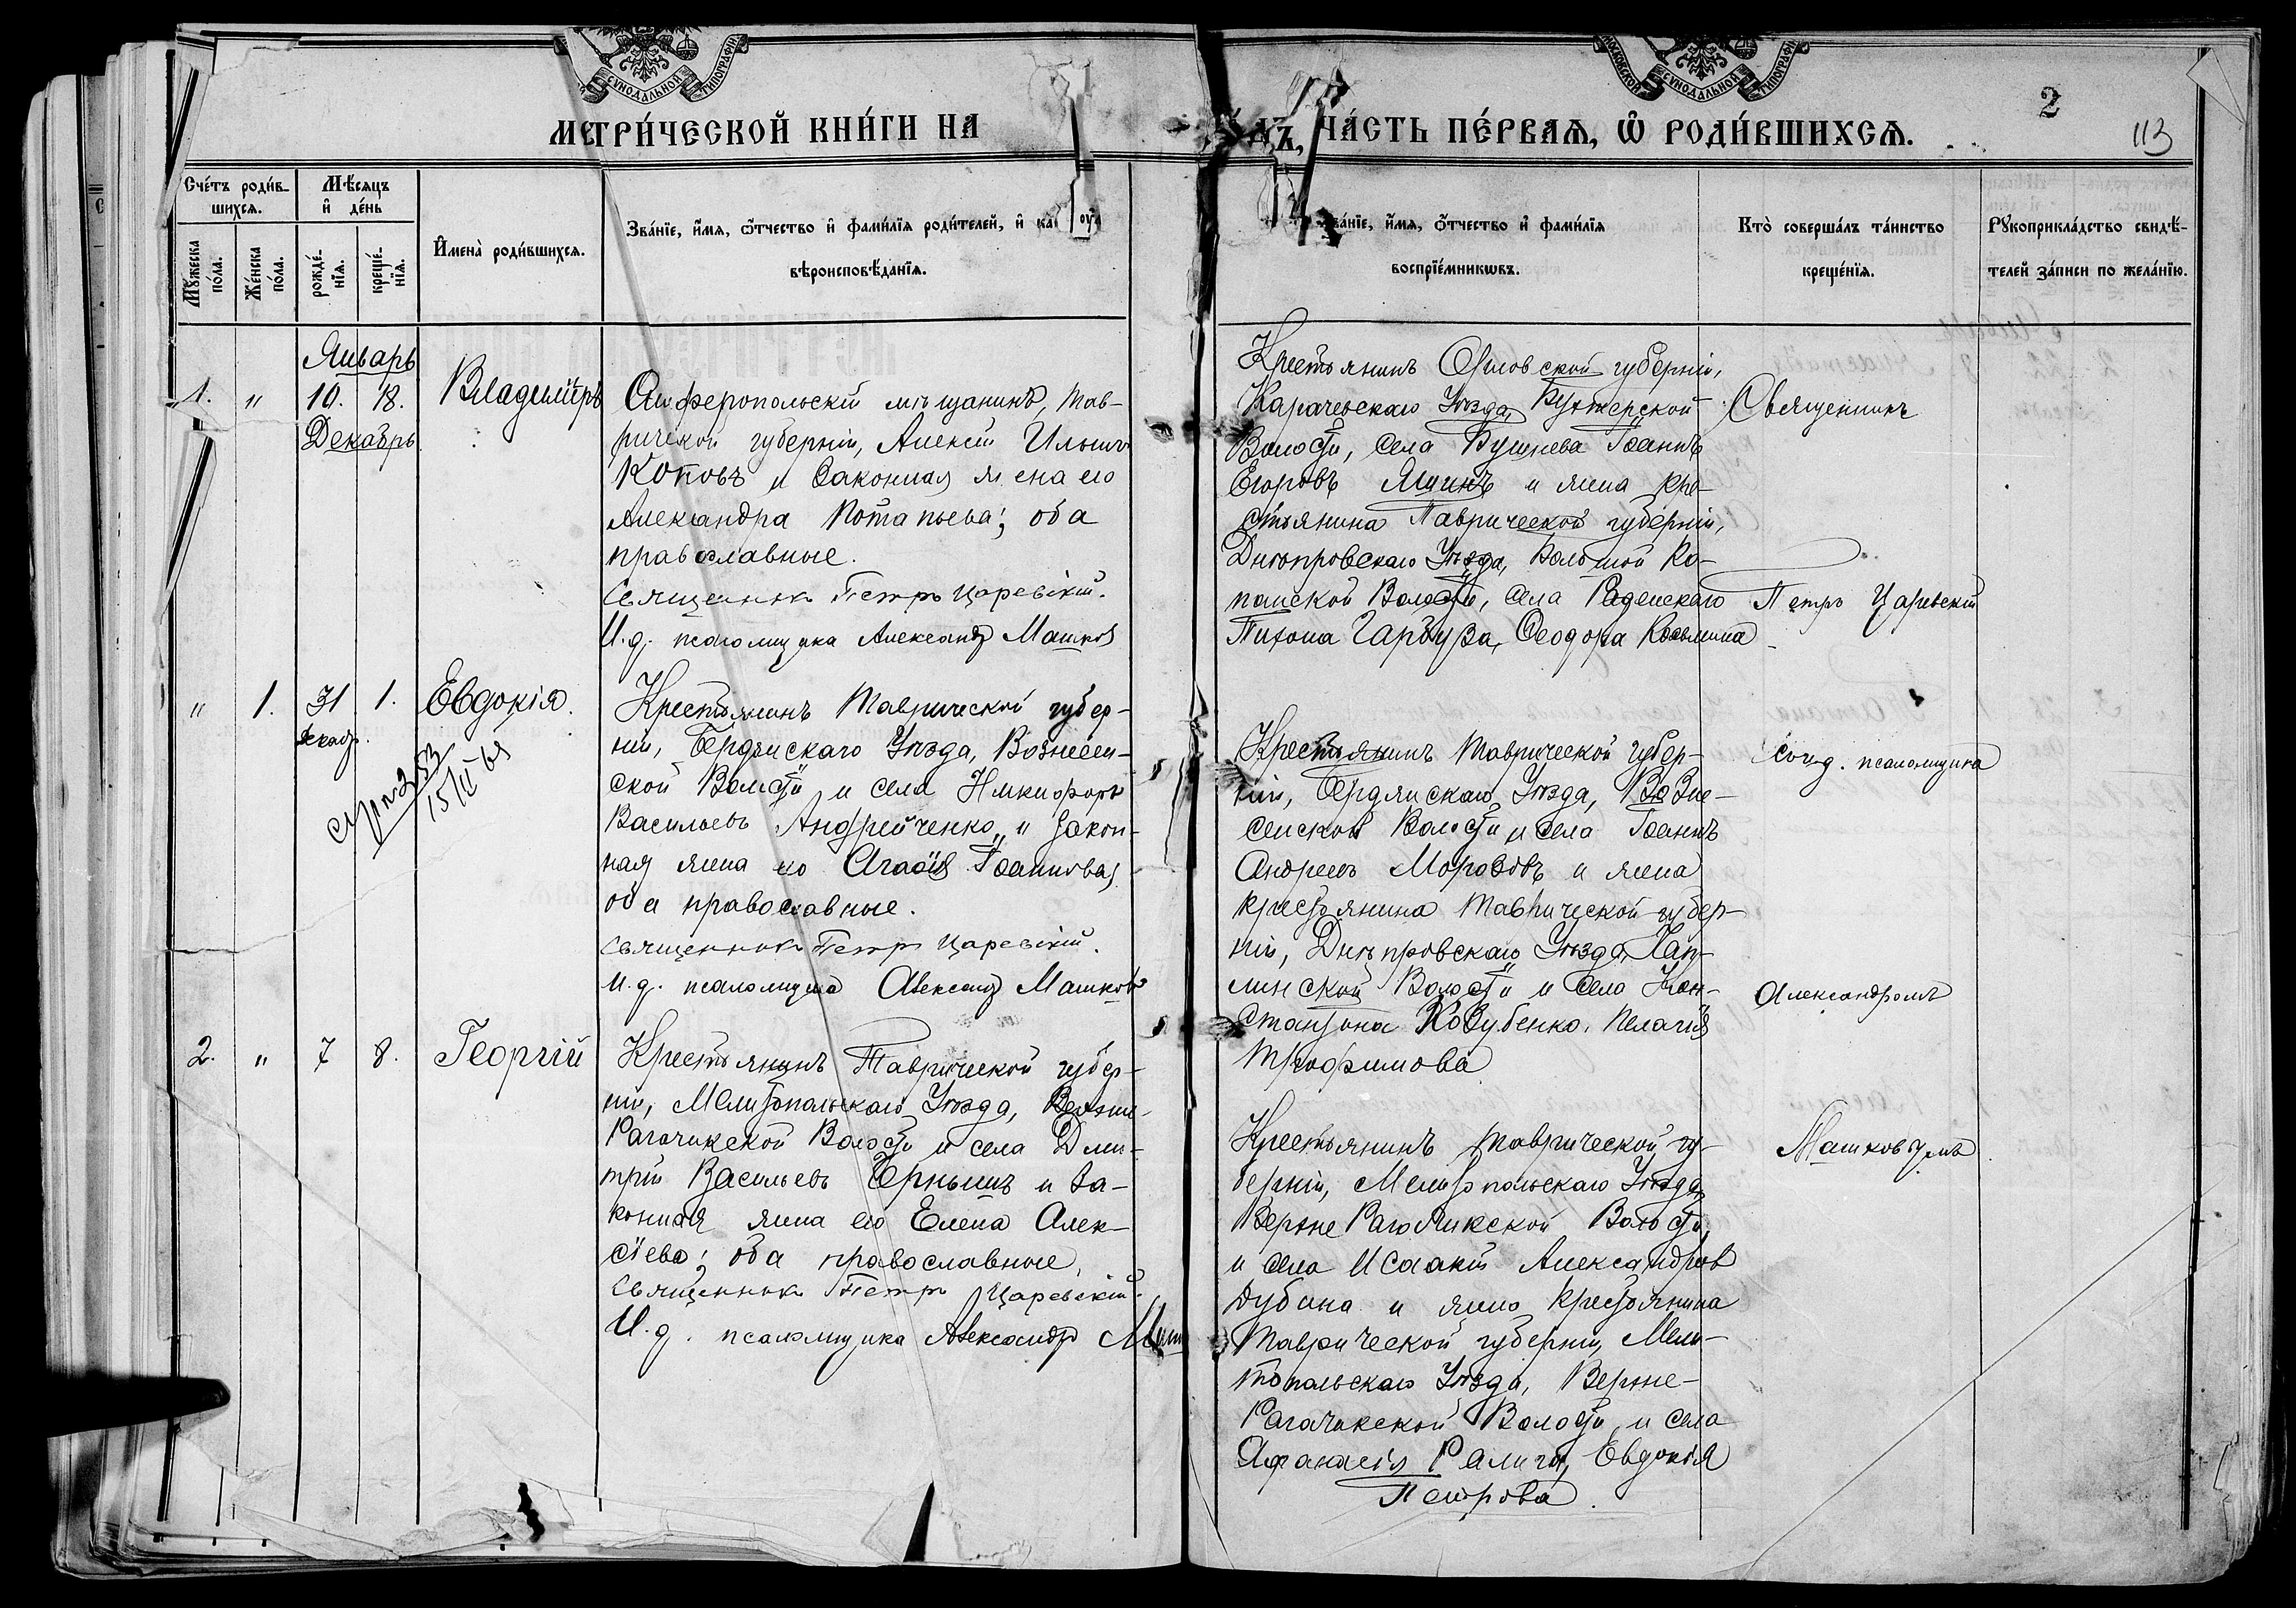 СѴНОДАЛЬНОЙ ТИПОГРАФІИ
МОСКОВСКОЙ СѴНОДАЛЬНОЙ ТИПОГРАФІИ
МЕТРИ́ЧЕСКОЙ КНИ́ГИ НА
ДЪ, ЧА́СТЬ ПЕ́РВАЯ, Ѡ РОДИ́ВШИХСЯ.
2
113
Сче́тъ роди́в-
шихся.
Мѣ́сяцъ
и де́нь
Мꙋ́жеска
по́ла.
Же́нска
по́ла.
рожде́-
нїя.
креще́-
нїя.
И҆мена̀ роди́вшихся.
Зва́нїе, и҆́мя, ѻ҆́тчество и҆ фами́лїя роди́телей, и҆ ка
вѣроисповѣ́данїя.
ва́нїе, и҆́мя, ѻ҆́тчество и҆ фами́лїя
воспрїе́мникѡвъ.
Кто̀ соверша́лъ та́инство
креще́нїя.
Рꙋкоприкла́дство свидѣ́-
телей за́писи по жела́нїю.
Январь
1. " 10. 18. Владиміръ
Декабрь
Симферопольскій мѣщанинъ, Тав-
рической губерніи, Алексій Ильинъ
Коповъ и законная жена его
Александра Потапьева; оба
православные.
Священникъ Петръ Царевскій.
И. д. псаломщика Александръ Машковъ
Крестьянинъ Орловской губерніи,
Карачевскаго Уѣзда,
Волости, села Іоаннъ
Егоровъ Яшинъ и жена кре-
стьянина Таврической губерніи,
Днѣпровскаго Уѣзда, Большой Ко-
панской Волости, села Раденскаго
Тихона Гарбуза, Ѳеодора Козьмина
Священникъ
Петръ Царевскій
" 1. 31 1. Евдокія.
декабр.
15/II 65
Крестьянинъ Таврической губер-
ніи, Бердянскаго Уѣзда, Вознесен-
ской Волости и села Никифоръ
Васильевъ Андрейченко и закон-
ная жена его Агафія Іоаннова,
оба православные.
Священникъ Петръ Царевскій.
И. д. псаломщика Александръ Машковъ
Крестьянинъ Таврической губер-
ніи, Бердянскаго Уѣзда, Возне-
сенской Волости и села Іоаннъ
Андреевъ Морозовъ и жена
крестьянина Таврической губер-
ніи, Днѣпровскаго Уѣзда, Чап-
линской Волости и села Кон-
стантина Козубенко, Пелагія
Трофимова
Со и. д. псаломщика
Александромъ
Машковымъ
2. " 7 8. Георгій
Крестьянинъ Таврической губер-
ніи, Мелитопольскаго Уѣзда, Верхне-
Рагачикской Волости и села Дми-
трій Васильевъ Чернышъ и за-
конная жена его Елена Алек-
сіева; оба православные,
Священникъ Петръ Царевскій.
И. д. псаломщика Александръ Маш
Крестьянинъ Таврической гу-
берніи, Мелитопольскаго Уѣзда,
Верхне Рагачикской Волости,
и села Исаакій Александровъ
Дубина и жена крестьянина
Таврической губерніи, Мели-
топольскаго Уѣзда, Верхне-
Рагачикской Волости, и села
Афанасія Евдокія
Петрова.